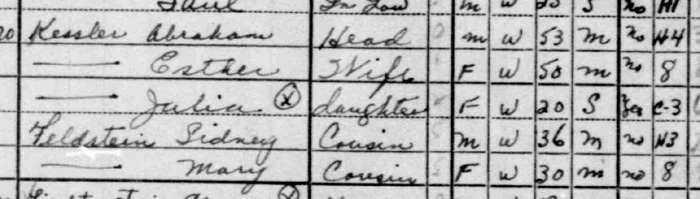 In Law M W S no H1
Kessler Abraham Head M W 53 M no H4
Esther Wife F W 50 m no 8
Julia ⓧ daughter F W 20 S Yes C-3
Feldstein Sidney Cousin M W 36 M no H3
Mary Cousin F W 30 m no 8